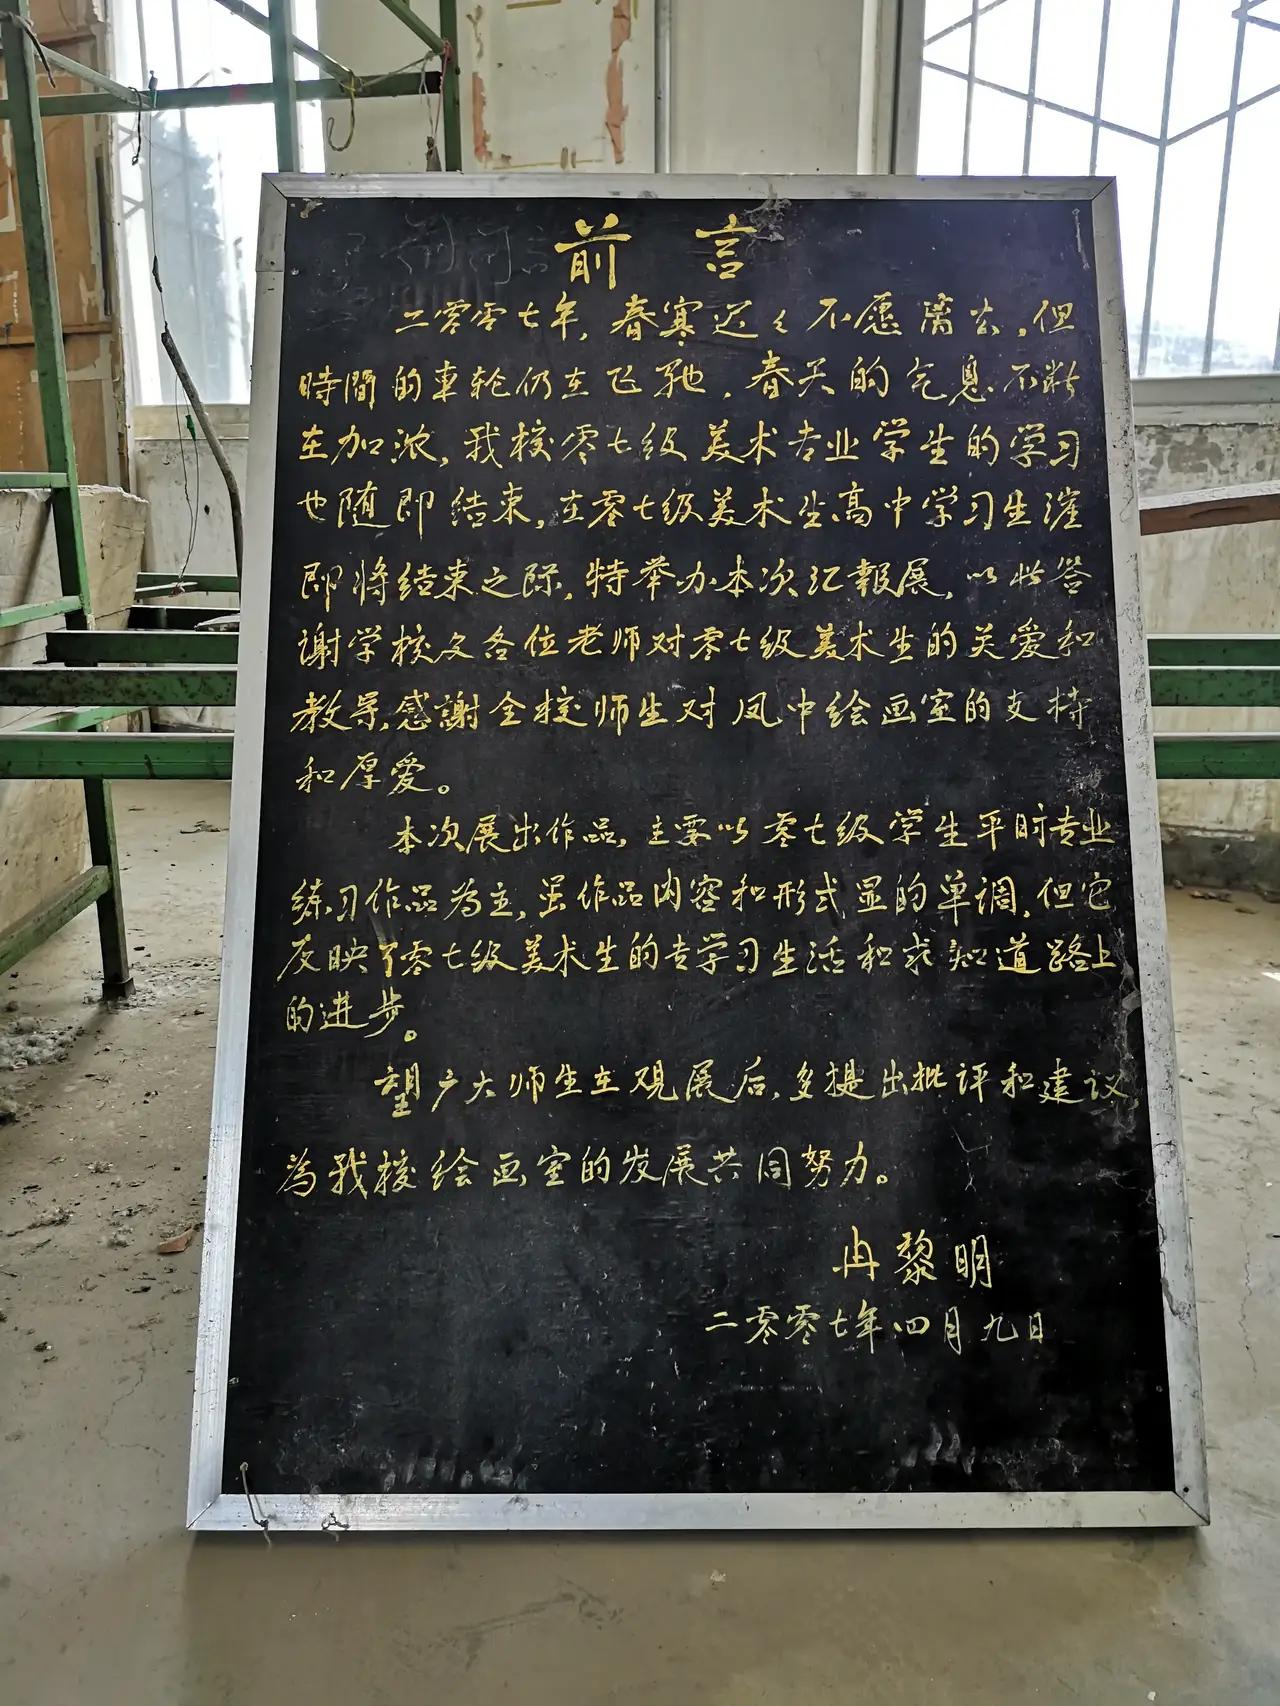 前言
二零零七年，春寒迟々不愿离去，但
時間的車轮仍在飞驰，春天的气息不断
在加浓，我校零七级美术专业学生的学习
也随即结束，在零七级美术生高中学习生涯
即将结束之际，特举办本次汇報展，以此答
谢学校及各位老师对零七级美术生的关爱和
教导，感謝全校师生对凤中绘画室的支持
和厚爱。
本次展出作品，主要以零七级学生平时专业
练习作品为主，虽作品内容和形式显的单调，但它
反映了零七级美术生的专学习生活和求知道路上
的进步。
望广大师生在观展后，多提出批评和建议
為我校绘画室的发展共同努力。
冉黎明
二零零七年四月九日